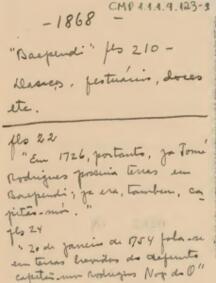 CMP 1.1.9.123-3
- 1868 -
"Baependi" fls 210 -
Dansas, vestuários, doces
etc.
fls 22
"Em 1726, portanto, ja Tomé
Rodrigues possuia terras em
Baependi; ja era, tambem, ca-
pitão-mór."
fls 24
"20 de janeiro de 1754 fala-se
em terras havidas do defunto
capitão-mór Rodrigues Nog. do Ó"